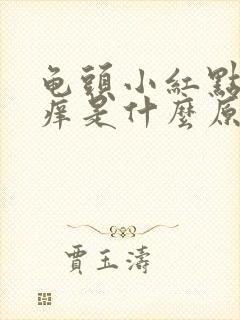 龟頭小紅點
痒是什麼原
賈玉濤